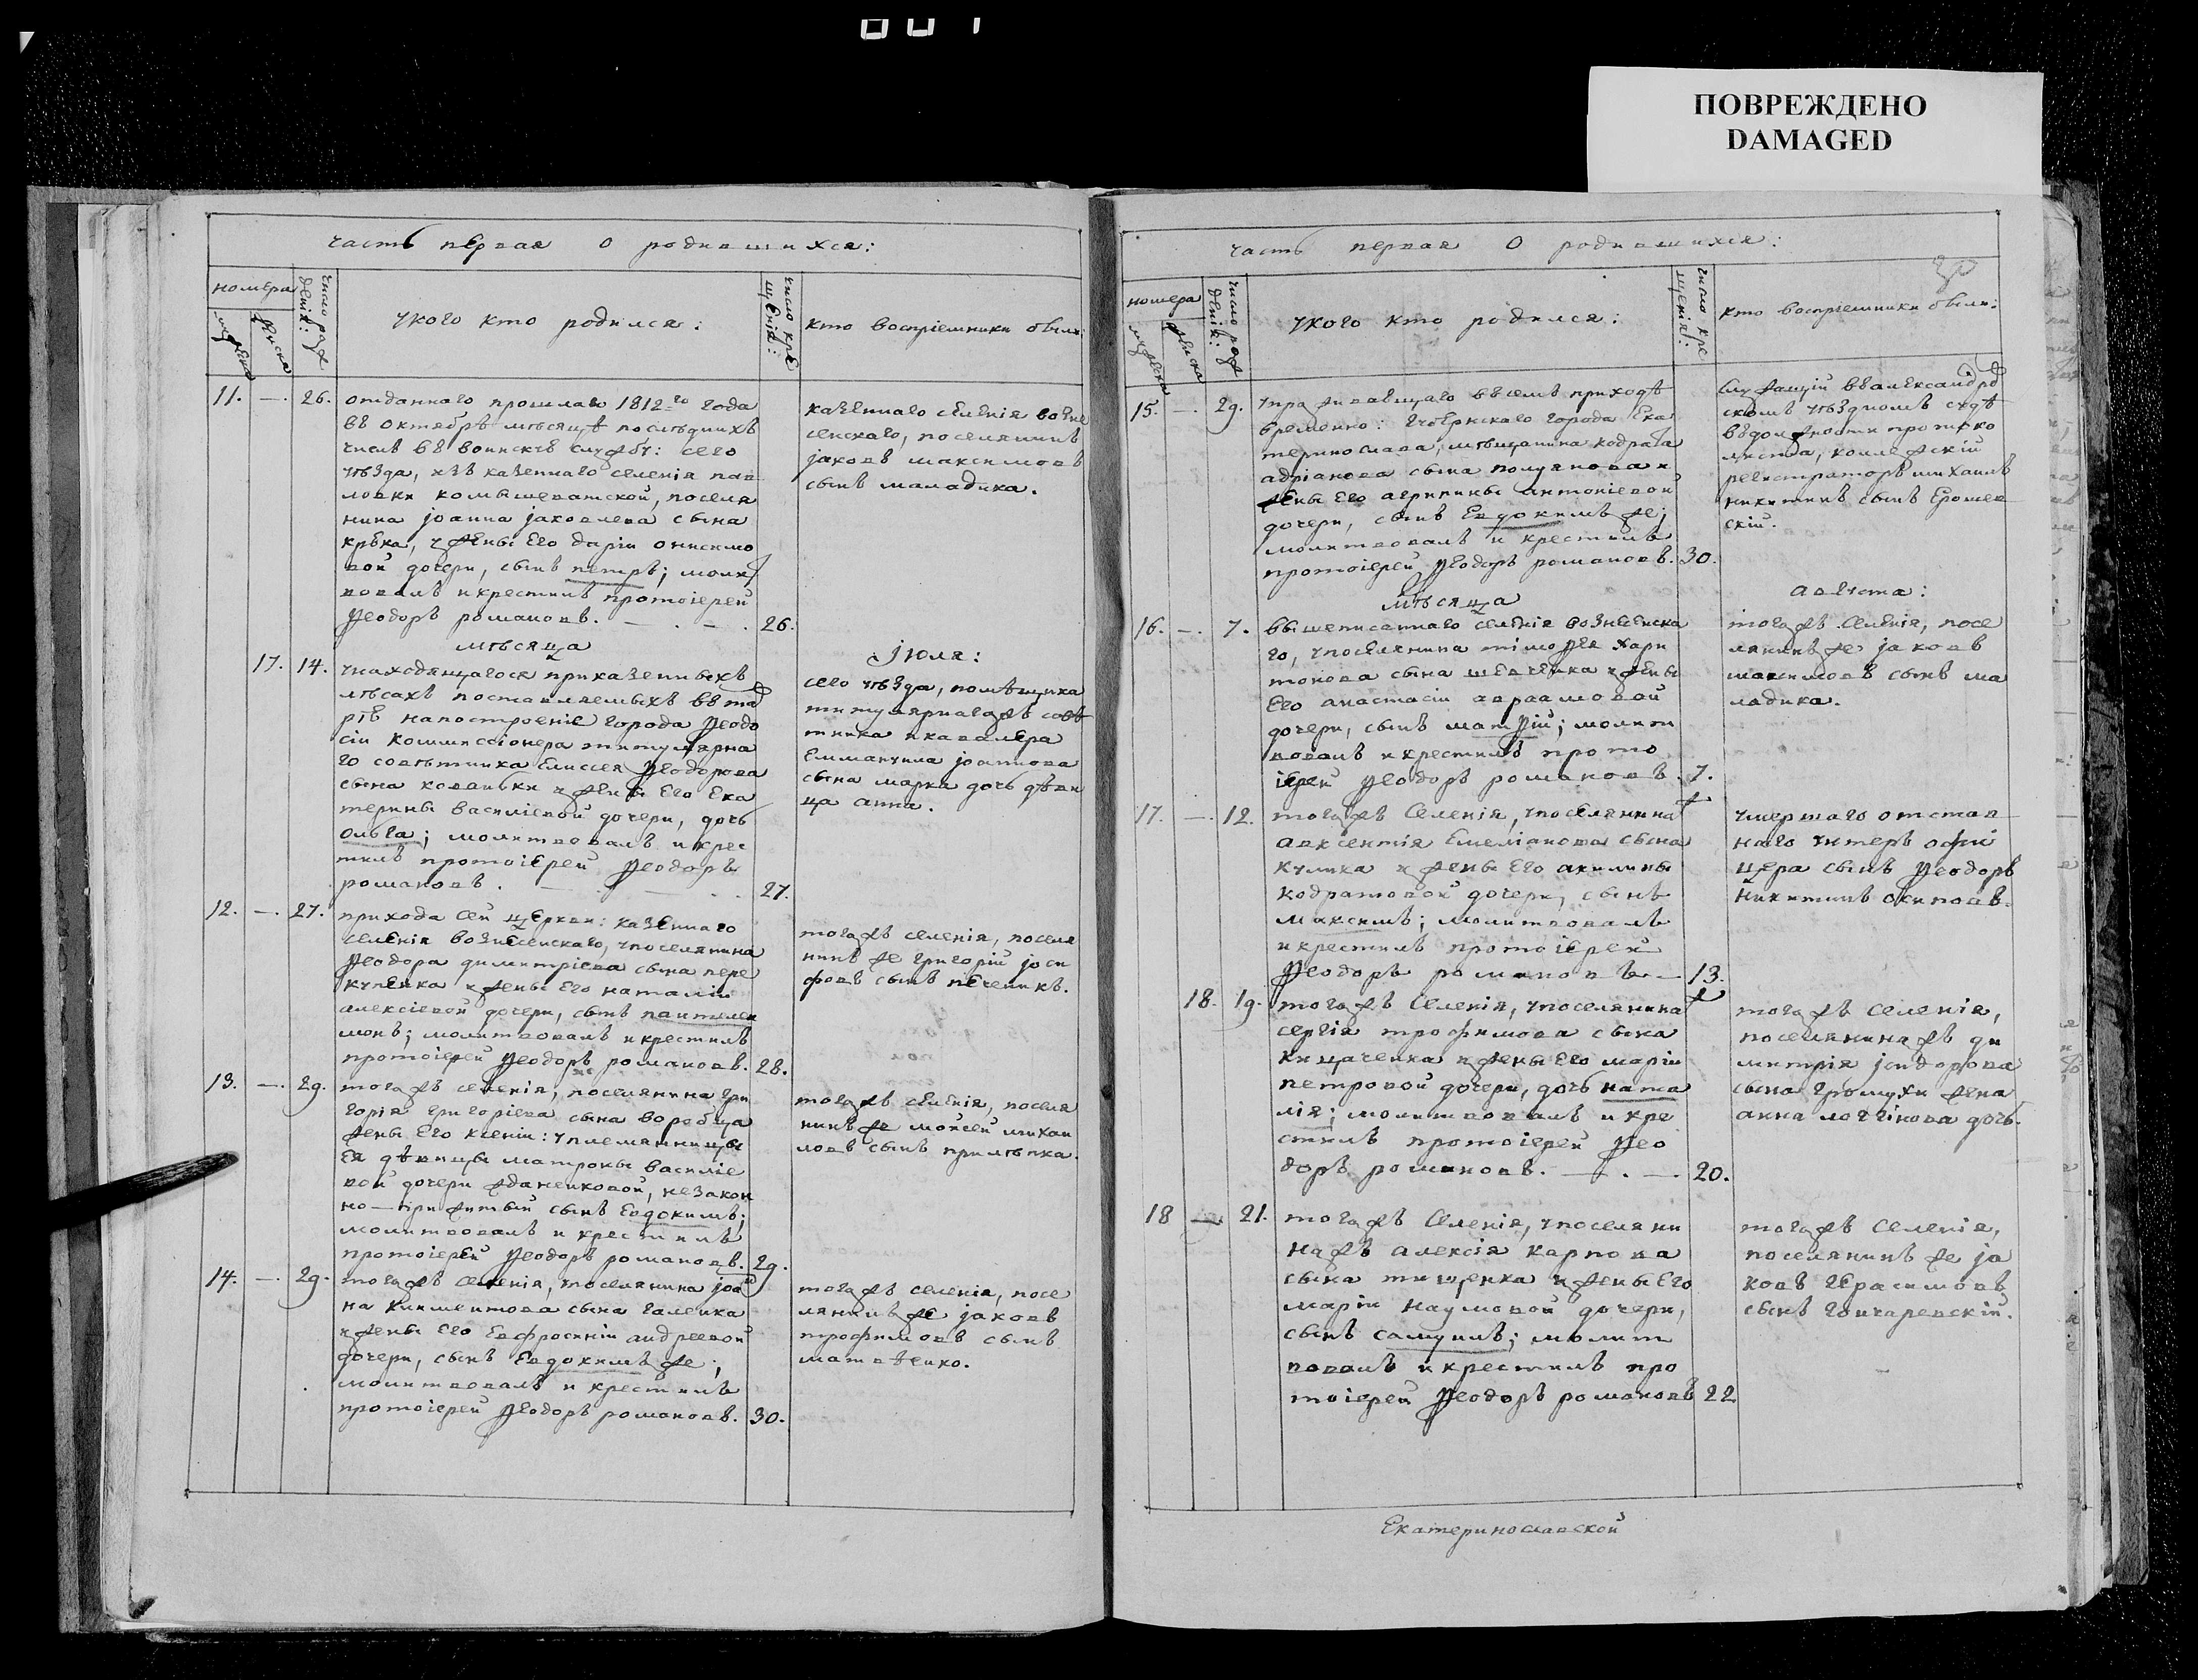 ПОВРЕЖДЕНО
DAMAGED
часть первая о родившихся:
номера
мужеска
женска
число рож
денія:
укого кто родился:
число кре
щенія:
кто воспріемники были:
11. — 26. отданнаго прошлаго 1812-го года
въ октябрѣ мѣсяцѣ послѣднихъ
числъ въ воинску службу: сего
уѣзда, изъ казеннаго селенія пав
ловки комышеватской, поселя
нина јоанна јаковлева сына
крѣка, у жены его даріи онисимо
вой дочери, сынъ петръ; молит
вовалъ и крестилъ протоіерей
Ѳеодоръ романовъ. — . — . 26.
казеннаго селенія возне
сенскаго, поселянинъ
јаковъ максимовъ
сынъ маладика.
мѣсяца
Јюля:
17. 14. унаходящагося приказенныхъ
лѣсахъ поставляемыхъ въ та
рїѣ напостроеніе города Ѳеодо
сіи коммиссіонера титулярна
го совѣтника Елисея Ѳеодорова
сына кованьки у жены Его Ека
терины василіевой дочери, дочь
ольга; молитвовалъ и крес
тилъ протоіерей Ѳеодоръ
романовъ. 27.
сего уѣзда, помѣщика
титулярнагожъ совѣ
тника икавалера
Еммануила јоаннова
сына марка дочь дѣви
ца анна.
12. — 27. прихода сей церкви: казеннаго
селенія вознесенскаго, упоселянина
Ѳеодора димитріева сына пере
купенка у жены Его наталіи
алексіевой дочери, сынъ пантелеи
монъ; молитвовалъ и крестилъ
протоіерей Ѳеодоръ романовъ. 28.
тогожъ селенія, поселя
нинъ же григорій јоси
фовъ сынъ печеникъ.
13. — 29. тогожъ селенія, поселянина гри
горія григоріева сына воробца
жены Его ксеніи: уплемянницы
Ея дѣвицы матроны василіе
вой дочери жданенковой, незакон
но-прижитый сынъ Евдокимъ;
молитвовалъ и крестилъ
протоіерей Ѳеодоръ романовъ. 29.
тогожъ селенія, поселя
нинъ же мойсей михаи
ловъ сынъ прилѣпка.
14. — 29. тогожъ селенія, упоселянина јоан
на климентова сына галенка
у жены Его Евфросиніи андреевой
дочери, сынъ Евдокимъ же;
молитвовалъ и крестилъ
протоіерей Ѳеодоръ романовъ. 30.
тогожъ селенія, посе
лянинъ же јаковъ
трофимовъ сынъ
матвѣенко.
часть первая о родившихся:
номера
мужеска
женска
число рож
денія:
укого кто родился:
число кре
щенія:
кто воспріемники были:
15. — 29. упроживавщаго въ семъ приходѣ
временно: губернскаго города Ека
теринослава, мѣщанина кодрата
адріанова сына полуянова и
жены Его агрипины антоніевой
дочери, сынъ Евдокимъ же;
молитвовалъ и крестилъ
протоіерей Ѳеодоръ романовъ. 30.
служащій въ александров
скомъ уѣздномъ судѣ
въ должности протоко
листа, коллежскій
регистраторъ михаилъ
никитинъ сынъ Ерошев
скій.
мѣсяца
августа:
16. — 7. вышеписаннаго селенія вознесенска
го, упоселянина тімоѳея хари
тонова сына шевченка у жены
Его анастасіи авраамовой
дочери, сынъ матѳій; молит
вовалъ и крестилъ прото
іерей Ѳеодоръ романовъ. 7.
тогожъ селенія, посе
лянинъ же јаковъ
максимовъ сынъ ма
ладика.
17. — 12. тогожъ Селенія, упоселянина
авксентія Емеліанова сына
кулика у жены Его акилины
кодратовой дочери, сынъ
максимъ; молитвовалъ
и крестилъ протоіерей
Ѳеодоръ романовъ. — 13.
умершаго отстав
наго унтеръ офи
цера сынъ Ѳеодоръ
никитинъ осиповъ.
18. 19. тогожъ Селенія, упоселянина
сергія трофимова сына
куцаченка у жены Его маріи
петровой дочери, дочь ната
лія; молитвовалъ и кре
стилъ протоіерей Ѳео
доръ романовъ. — . — 20.
тогожъ Селенія,
поселянинажъ ди
митрія јсидорова
сына громухи жена
анна логгінова дочь.
18 — 21. тогожъ Селенія, упоселяни
нажъ алексія карпова
сына тищенка у жены Его
маріи наумовой дочери,
сынъ самуилъ; молит
вовалъ и крестилъ про
тоіерей Ѳеодоръ романовъ 22
тогожъ Селенія,
поселянинъ же ја
ковъ герасимовъ
сынъ гончаревскій.
Екатеринославской